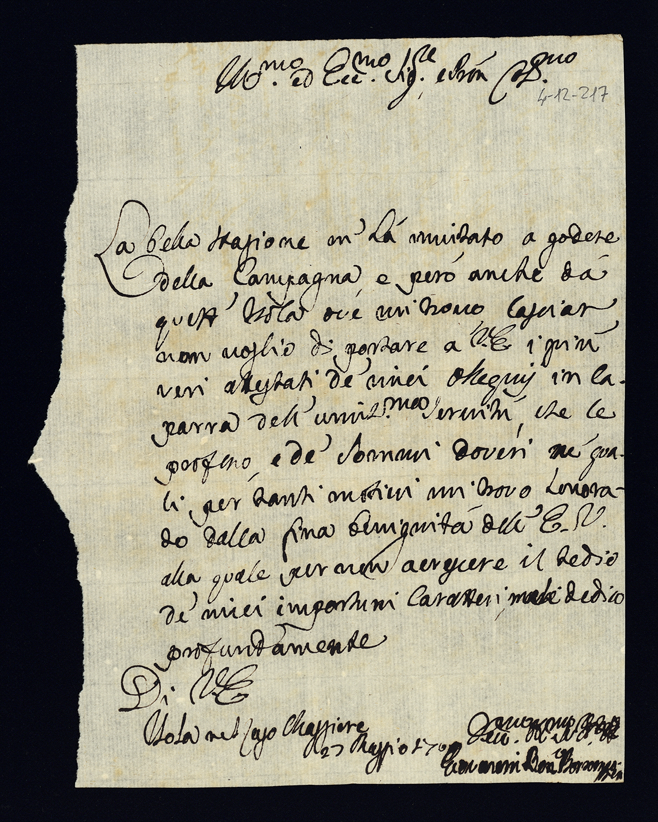 Ill.mo ed Ecc.mo Sig.re e Pron
4-12-217
La bella stagione m'hà invitato a godere
della Campagna, e però anche dà
quest'Isola ove mi trovo lasciar
non voglio di portare a V.E. i più
veri attestati de miei ossequij in ca-
parra dell' umil.ma servitù, che le
professo, e de sommi doveri ne qua-
li per tanti motivi mi trovo honora-
to dalla fina benignità dell' E.V.
alla quale per non accrescere il tedio
de miei importuni Caratteri, mi dedico
profundamente
Di V.E.
Isola nel Lago Maggiore
27 Maggio
Giovanni